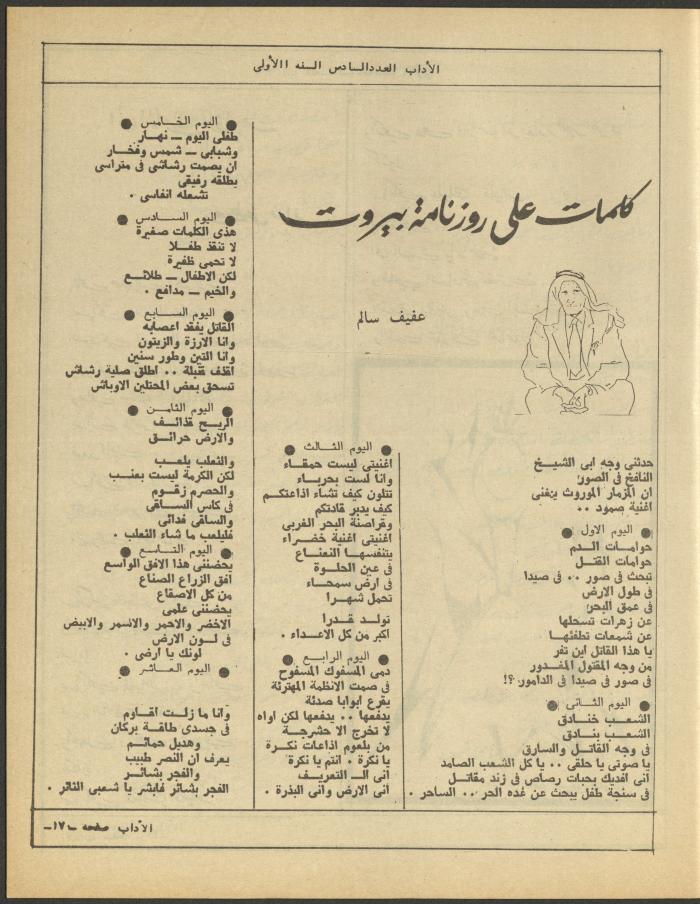 الآداب العدد السادس السنه االأولى
كلمات على روزنامة بيروت
عفيف سالم
حدثنى وجه ابى الشيـــخ
النافخ فى الصور
ان المزمار الموروث يتغنى
اغنية صمود ..
● اليوم الاول ●
حوامـات الـدم
حوامات القتـل
تبحث فى صور .. فى صيدا
فى طول الارض
فى عمق البحر
عن زهرات تسحلها
عن شمعات تطفئهـا
يا هذا القاتل اين تفر
من وجه المقتول المغـدور
فى صور فى صيدا فى الدامور ؟!
● اليوم الثـانى ●
الشعـب خنـادق
الشعـب بنـادق
فى وجه القاتـل والسارق
يا صوتى يا حلقى .. يا كل الشعب الصامد
انى افديك بحبات رصاص فى زند مقاتـل
فى سنجة طفل يبحث عن غده الحر .. الساحر .
● اليوم الثـالث ●
اغنيتى ليست حمقـاء
وانا لست بحربـاء
تتلون كيف تشاء اذاعتكـم
كيف يدير قادتكم
وقراصنة البحر الغربى
اغنيتى اغنية خضـراء
يتنفسهـا النعنـاع
فى عين الحلـوة
فى ارض سمحـاء
تحمل شهـرا
تولـد قـدرا
اكبر من كل الاعـداء .
● اليوم الرابـع ●
دمى المسفوك المسفوح
فى صمت الانظمة المهترئة
يقرع ابوابا صدئة
يدفعها .. يدفعها لكن اواه
لا تخرج الا حشرجـة
من بلعوم اذاعات نكـرة
يا نكرة . انتم يا نكرة
انى الـ التعريـف
انى الارض وانى البذرة .
● اليوم الخـامس ●
طفلى اليوم ــ نهـار
وشبابى ــ شمس وفخـار
ان يصمت رشاشى فى متراسى
يطلقه رفيقى
تشعله انفاسى .
● اليوم السـادس ●
هذى الكلمات صغيرة
لا تنقذ طفـلا
لا تحمى ظفيرة
لكن الاطفال ــ طلائـع
والخيم ــ مدافع .
● اليوم السـابع ●
القاتل يفقد اعصابه
وانا الارزة والزيتون
وانا التين وطور سنين
اقذف قنبلة .. اطلق صلية رشاش
تسحق بعض المحتلين الاوباش
● اليوم الثامـن ●
الريـح قذائـف
والارض حرائـق
والثعلب يلعـب
لكن الكرمة ليست بعنـب
والحصرم زقـوم
فى كاس السـاقى
والساقى فدائى
فليلعب ما شاء الثعلب .
● اليوم التـاسع ●
يحضننى هذا الافق الواسع
افق الزراع الصناع
من كل الاصقاع
يحضننى علمى
الاخضر والاحمر والاسمر والابيض
فى لـون الارض
لونك يا ارضى .
● اليوم العـاشر ●
وانا ما زلـت اقـاوم
فى جسدى طاقـة بركان
وهديل حمائـم
يعرف ان النصر طبيب
والفجر بشائـر
الفجر بشائر فابشر يا شعبى الثائر .
الآداب صفحة ــ١٧ــ